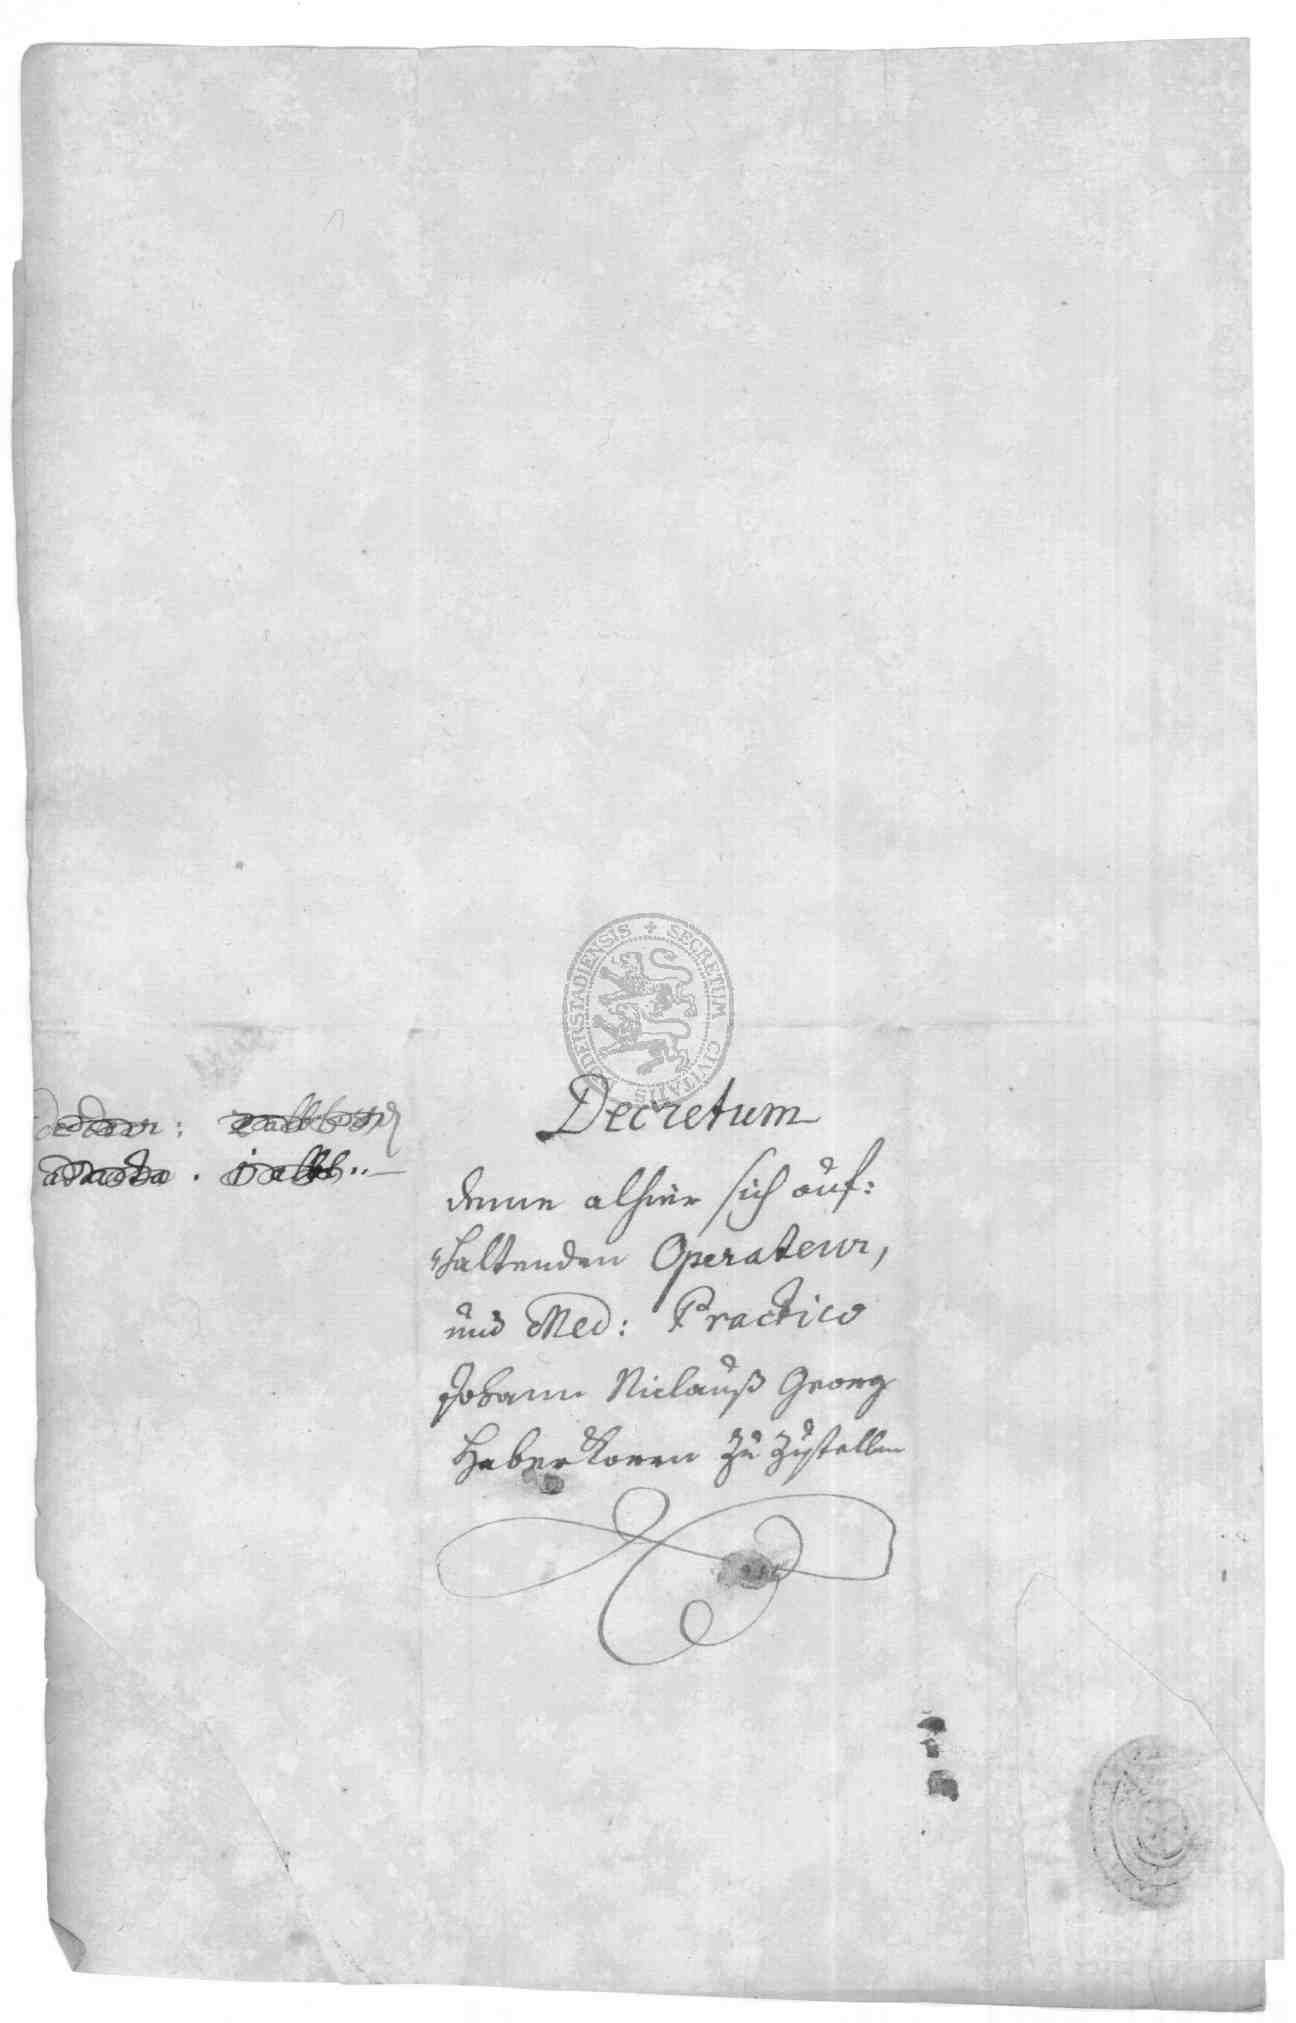 SECRETUM CIVITATIS DERSTADIENSIS
Decretum
denen alhier sich auf:
haltenden Operateur,
und Med: Practico
Johann Niclauß Georg
Haberkorn zu zustellen